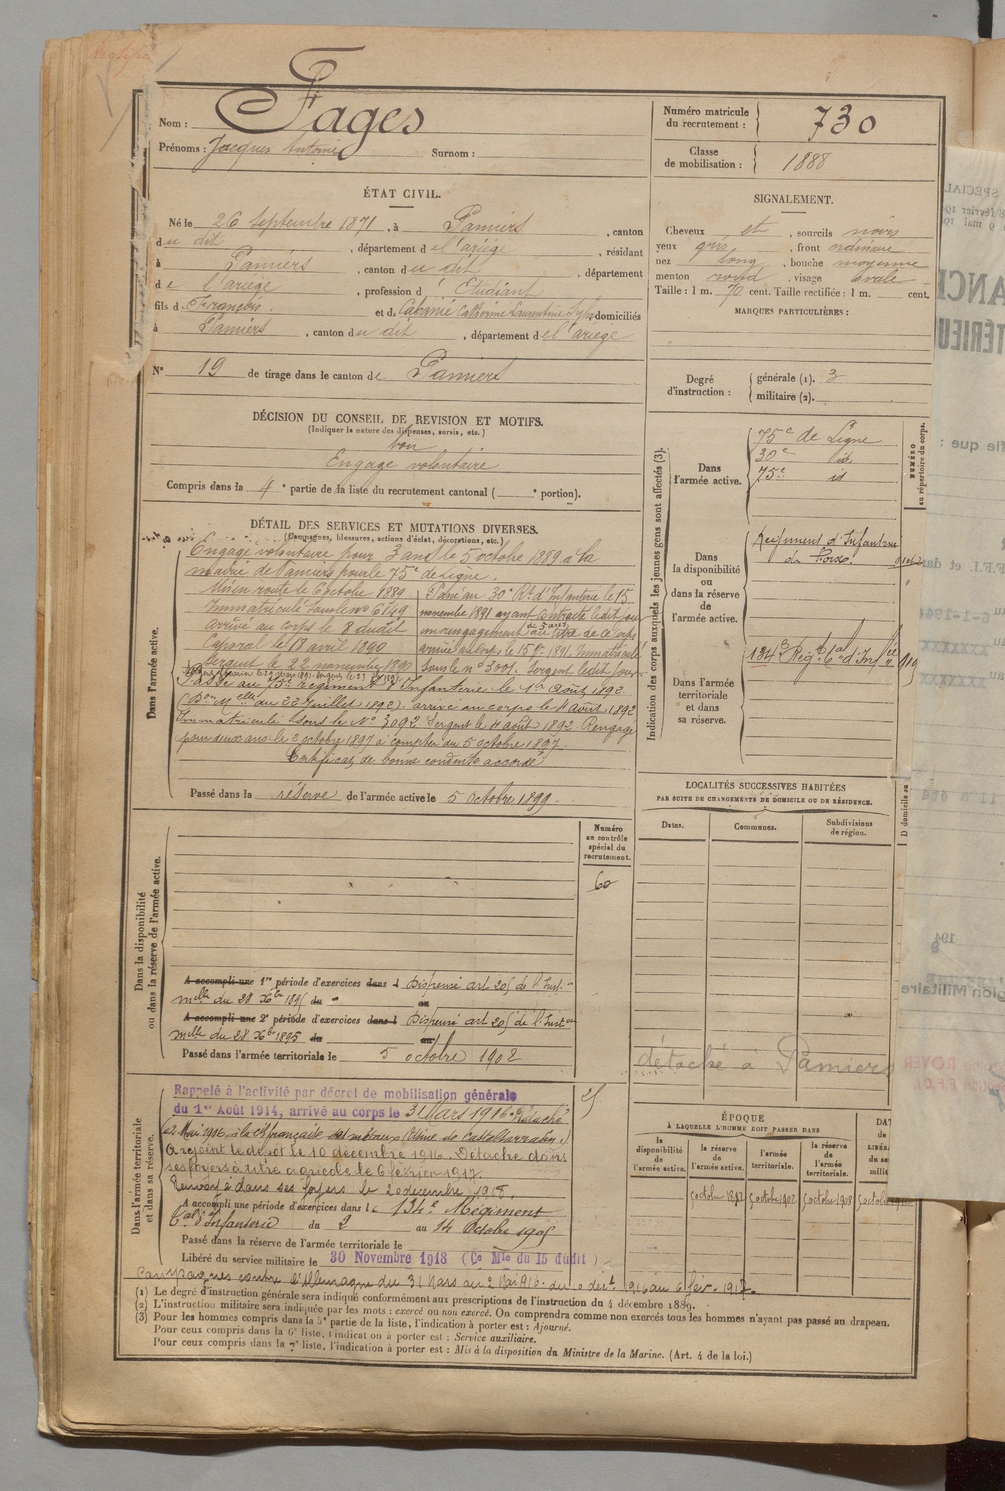 Nom : Fages
Prénoms : Jacques Antoine Surnom :
Numéro matricule du recrutement : 730
Classe de mobilisation : 1888
ÉTAT CIVIL.
Né le 26 Septembre 1871, à Pamiers, canton
du dit, département de l'ariège, résidant
à Pamiers, canton du dit, département
de l'ariège, profession d'Etudiant
fils de François et de Cabanié Catherine Laurentine domiciliés
à Pamiers, canton du dit, département de l'ariège
N° 19 de tirage dans le canton de Pamiers
SIGNALEMENT.
Cheveux et, sourcils noirs
yeux gris, front ordinaire
nez long, bouche moyenne
menton rond, visage ovale
Taille : 1 m. 70 cent. Taille rectifiée : 1 m. cent.
MARQUES PARTICULIÈRES :
Degré d'instruction : générale (1). 3
militaire (2).
DÉCISION DU CONSEIL DE REVISION ET MOTIFS.
(Indiquer la nature des dispenses, sursis, etc.)
bon
Engagé volontaire
Compris dans la 4e partie de la liste du recrutement cantonal ( e portion).
DÉTAIL DES SERVICES ET MUTATIONS DIVERSES.
(Campagnes, blessures, actions d'éclat, décorations, etc.)
Dans l'armée active.
Engagé volontaire pour 3 ans le 5 octobre 1889 à la
mairie de Pamiers pour le 75e de Ligne.
Mis en route le 6 octobre 1889
Immatriculé sous le no 6149
arrivé au corps le 8 du dit
Caporal le 18 avril 1890
Sergent le 22 novembre 1890
Passé au 30e Rt d'Infanterie le 15
novembre 1891 ayant contracté ledit jour
un rengagement de 5 ans au titre de ce corps
arrivé au corps le 15 9bre 1891. Immatriculé
sous le n° 3001. Sergent ledit jour
Passé au 75e régiment d'Infanterie le 1er Août 1892
(Don Melle du 22 Juillet 1892) arrivé au corps le 4 août 1892
Immatriculé sous le N° 3092 Sergent le 4 août 1892. Rengagé
pour deux ans le 2 octobre 1897 à compter du 5 octobre 1897.
Certificat de bonne conduite accordé
Passé dans la réserve de l'armée active le 5 octobre 1899.
Indication des corps auxquels les jeunes gens sont affectés (3).
Dans l'armée active.
75e de Ligne
30e id
75e id
Dans la disponibilité ou dans la réserve de l'armée active.
Régiment d'Infanterie
de Foix
Dans l'armée territoriale et dans sa réserve.
134e Régt tal d'Infie
NUMÉRO au répertoire du corps.
LOCALITÉS SUCCESSIVES HABITÉES
PAR SUITE DE CHANGEMENTS DE DOMICILE OU DE RÉSIDENCE.
Dates. Communes. Subdivisions de région.
détaché à Pamiers
Dans la disponibilité ou dans la réserve de l'armée active.
Numéro au contrôle spécial du recrutement.
60
A accompli une 1re période d'exercices dans l Dispensé art 205 de l'Inst.
melle du 28 Xbre 1895 du au
A accompli une 2e période d'exercices dans l Dispensé art 205 de l'Inston
melle du 28 Xbre 1895 du au
Passé dans l'armée territoriale le 5 octobre 1902
Dans l'armée territoriale et dans sa réserve.
Rappelé à l'activité par décret de mobilisation générale
du 1er Août 1914, arrivé au corps le 31 Mars 1916. Détaché
le 2 Mai 1916, à la Cie française des métaux (Usine de Castelsarrasin)
A rejoint le dépôt le 10 décembre 1916. Détaché dans
ses foyers à titre agricole le 6 février 1917.
Renvoyé dans ses foyers le 20 décembre 1918.
A accompli une période d'exercices dans le 134e Régiment
tal d'Infanterie du 2 au 14 Octobre 1905
Passé dans la réserve de l'armée territoriale le
Libéré du service militaire le 30 Novembre 1918 (Ce Mle du 15 dudit)
Campagnes contre l'Allemagne du 31 Mars au 2 Mai 1916. du 10 décb. 1916 au 6 fév. 1917.
ÉPOQUE
À LAQUELLE L'HOMME DOIT PASSER DANS
la disponibilité de l'armée active.
la réserve de l'armée active.
l'armée territoriale.
la réserve de l'armée territoriale.
5 octobre 1892 5 octobre 1902 5 octobre 1908
(1) Le degré d'instruction générale sera indiqué conformément aux prescriptions de l'instruction du 4 décembre 1889.
(2) L'instruction militaire sera indiquée par les mots : exercé ou non exercé. On comprendra comme non exercés tous les hommes n'ayant pas passé au drapeau.
(3) Pour les hommes compris dans la 5e partie de la liste, l'indication à porter est : Ajourné.
Pour ceux compris dans la 6e liste, l'indication à porter est : Service auxiliaire.
Pour ceux compris dans la 7e liste, l'indication à porter est : Mis à la disposition du Ministre de la Marine. (Art. 4 de la loi.)